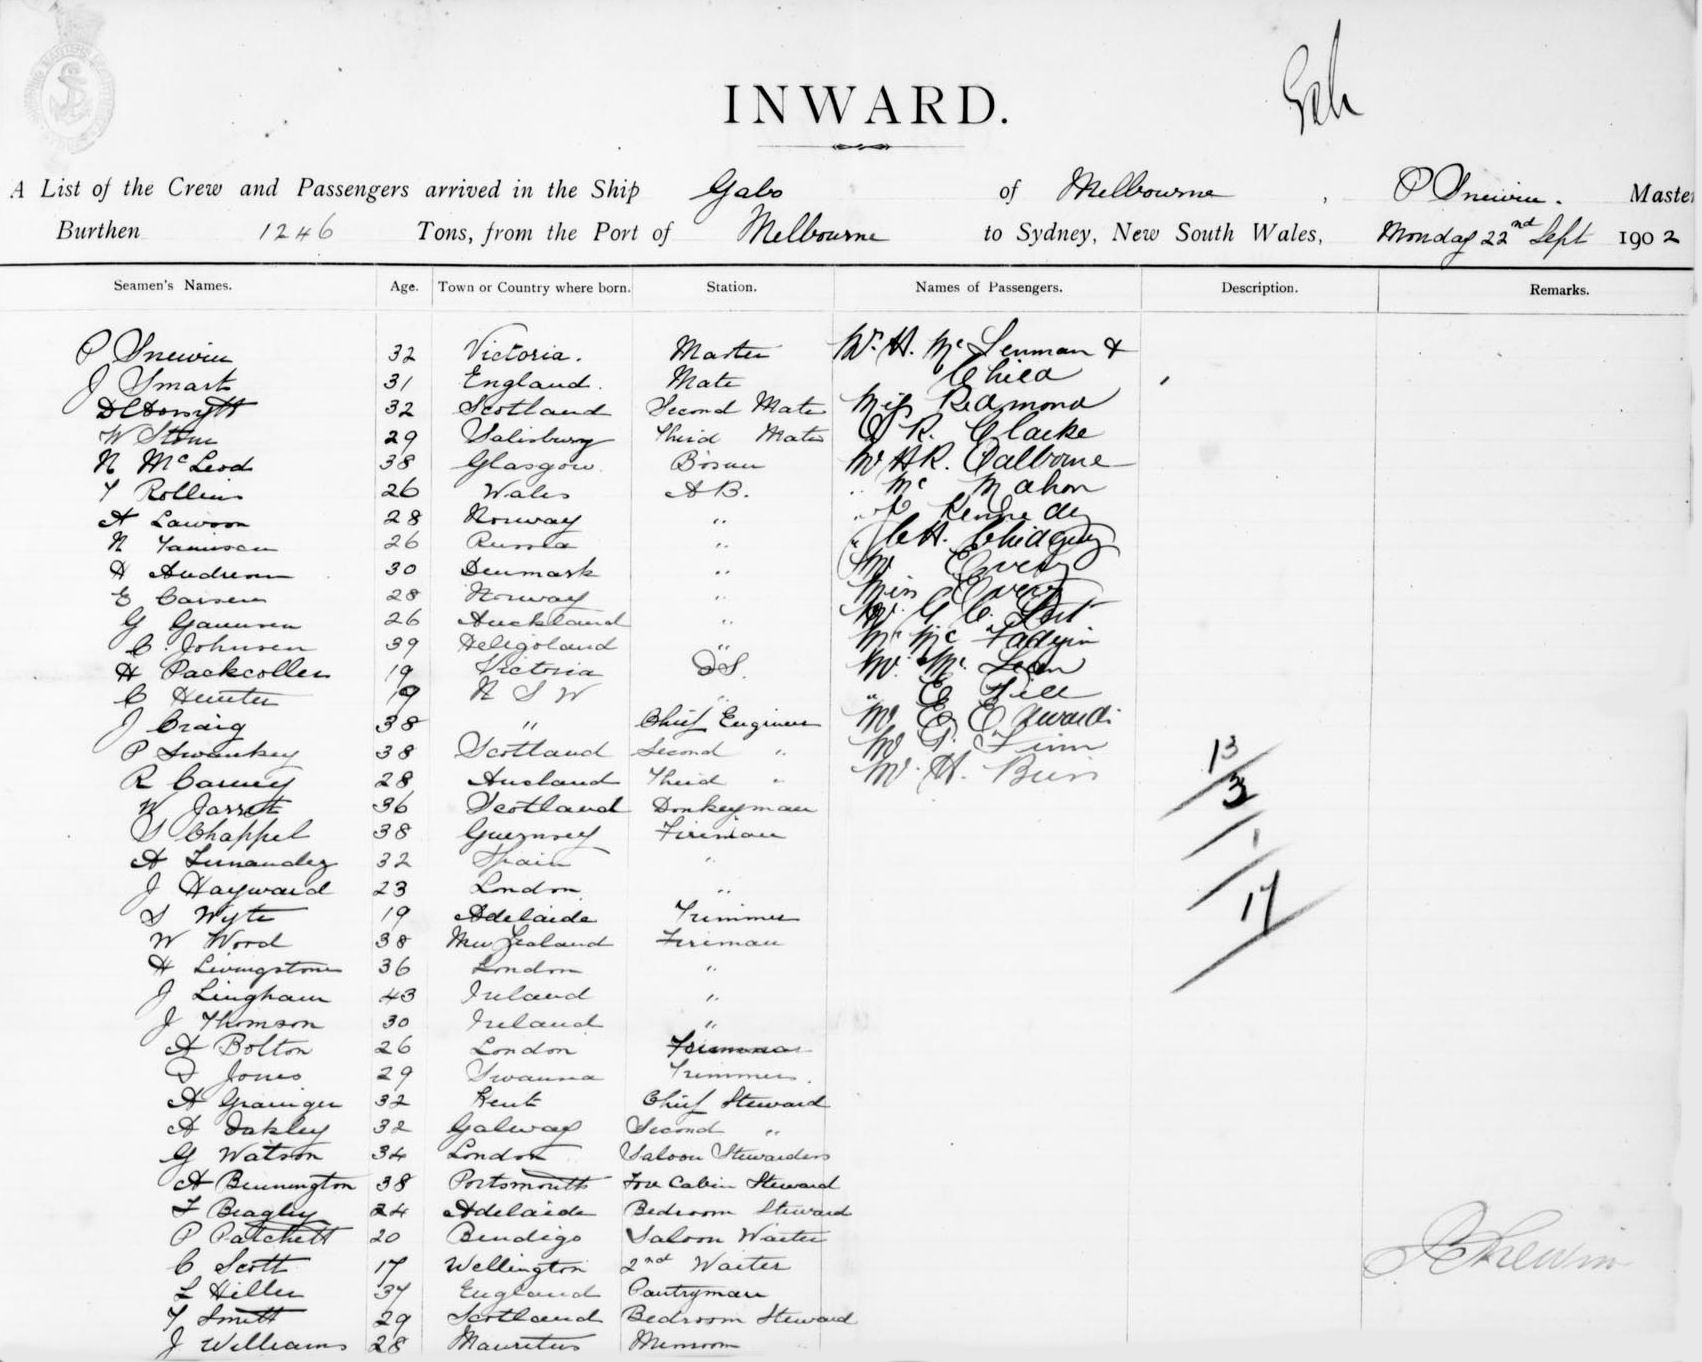 INWARD.
A List of the Crew and Passengers arrived in the Ship Gabo of Melbourne, P Snewin. Master
Burthen 1246 Tons, from the Port of Melbourne to Sydney, New South Wales, Monday 22nd Sept 1902
Seamen's Names. Age. Town or Country where born. Station. Names of Passengers. Description. Remarks.
P Snewin 32 Victoria. Master Mrs. H. McLennan &
Child
J Smart 31 England. Mate
32 Scotland Second Mate Miss Redmond
W Stone 29 Salisbury Third Mate R. Clarke
N McLeod 38 Glasgow Bosun Colborne
T Rollins 26 Wales A B. " Mc Mahon
A Lawson 28 Norway " " Kennedy
N 26 Russia " " C H. Chidgey
H Andersen 30 Denmark " Mr Every
E Carsen 28 Norway " Miss Every
G 26 Auckland " Mr. G C.
C. Johnsen 39 Heligoland " Mr Mc Fadyen
H Packcollen 19 Victoria O S. Mr. Mc Lean
C Hunter 19 N S W " " E
J Craig 38 " Chief Engineer Mr E. Edwards
P Swankey 38 Scotland Second " Mr Finn
R Carney 28 Third " Mr. H.
W Jarrett 36 Scotland Donkeyman
S Chappel 38 Guernsey Fireman
A Fernandez 32 Spain "
J Hayward 23 London "
S Wyte 19 Adelaide Trimmer
W Wood 38 New Zealand Fireman
H Livingstone 36 London "
J Lingham 43 Ireland "
J Thomson 30 Ireland "
A Bolton 26 London
D Jones 29 Swansea Trimmer.
A Grainger 32 Kent Chief Steward
A Oakley 32 Galway Second "
G Watson 34 London Saloon Stewardess
A Bennington 38 Portsmouth Fore Cabin Steward
F Beagley 24 Adelaide Bedroom Steward
P Patchett 20 Bendigo Saloon Waiter
C Scott 17 Wellington 2nd Waiter
L Hiller 37 England Pantryman
T Smith 29 Scotland Bedroom Steward
J Williams 28 Mauritius Messroom
13
3
1
17
P Snewin